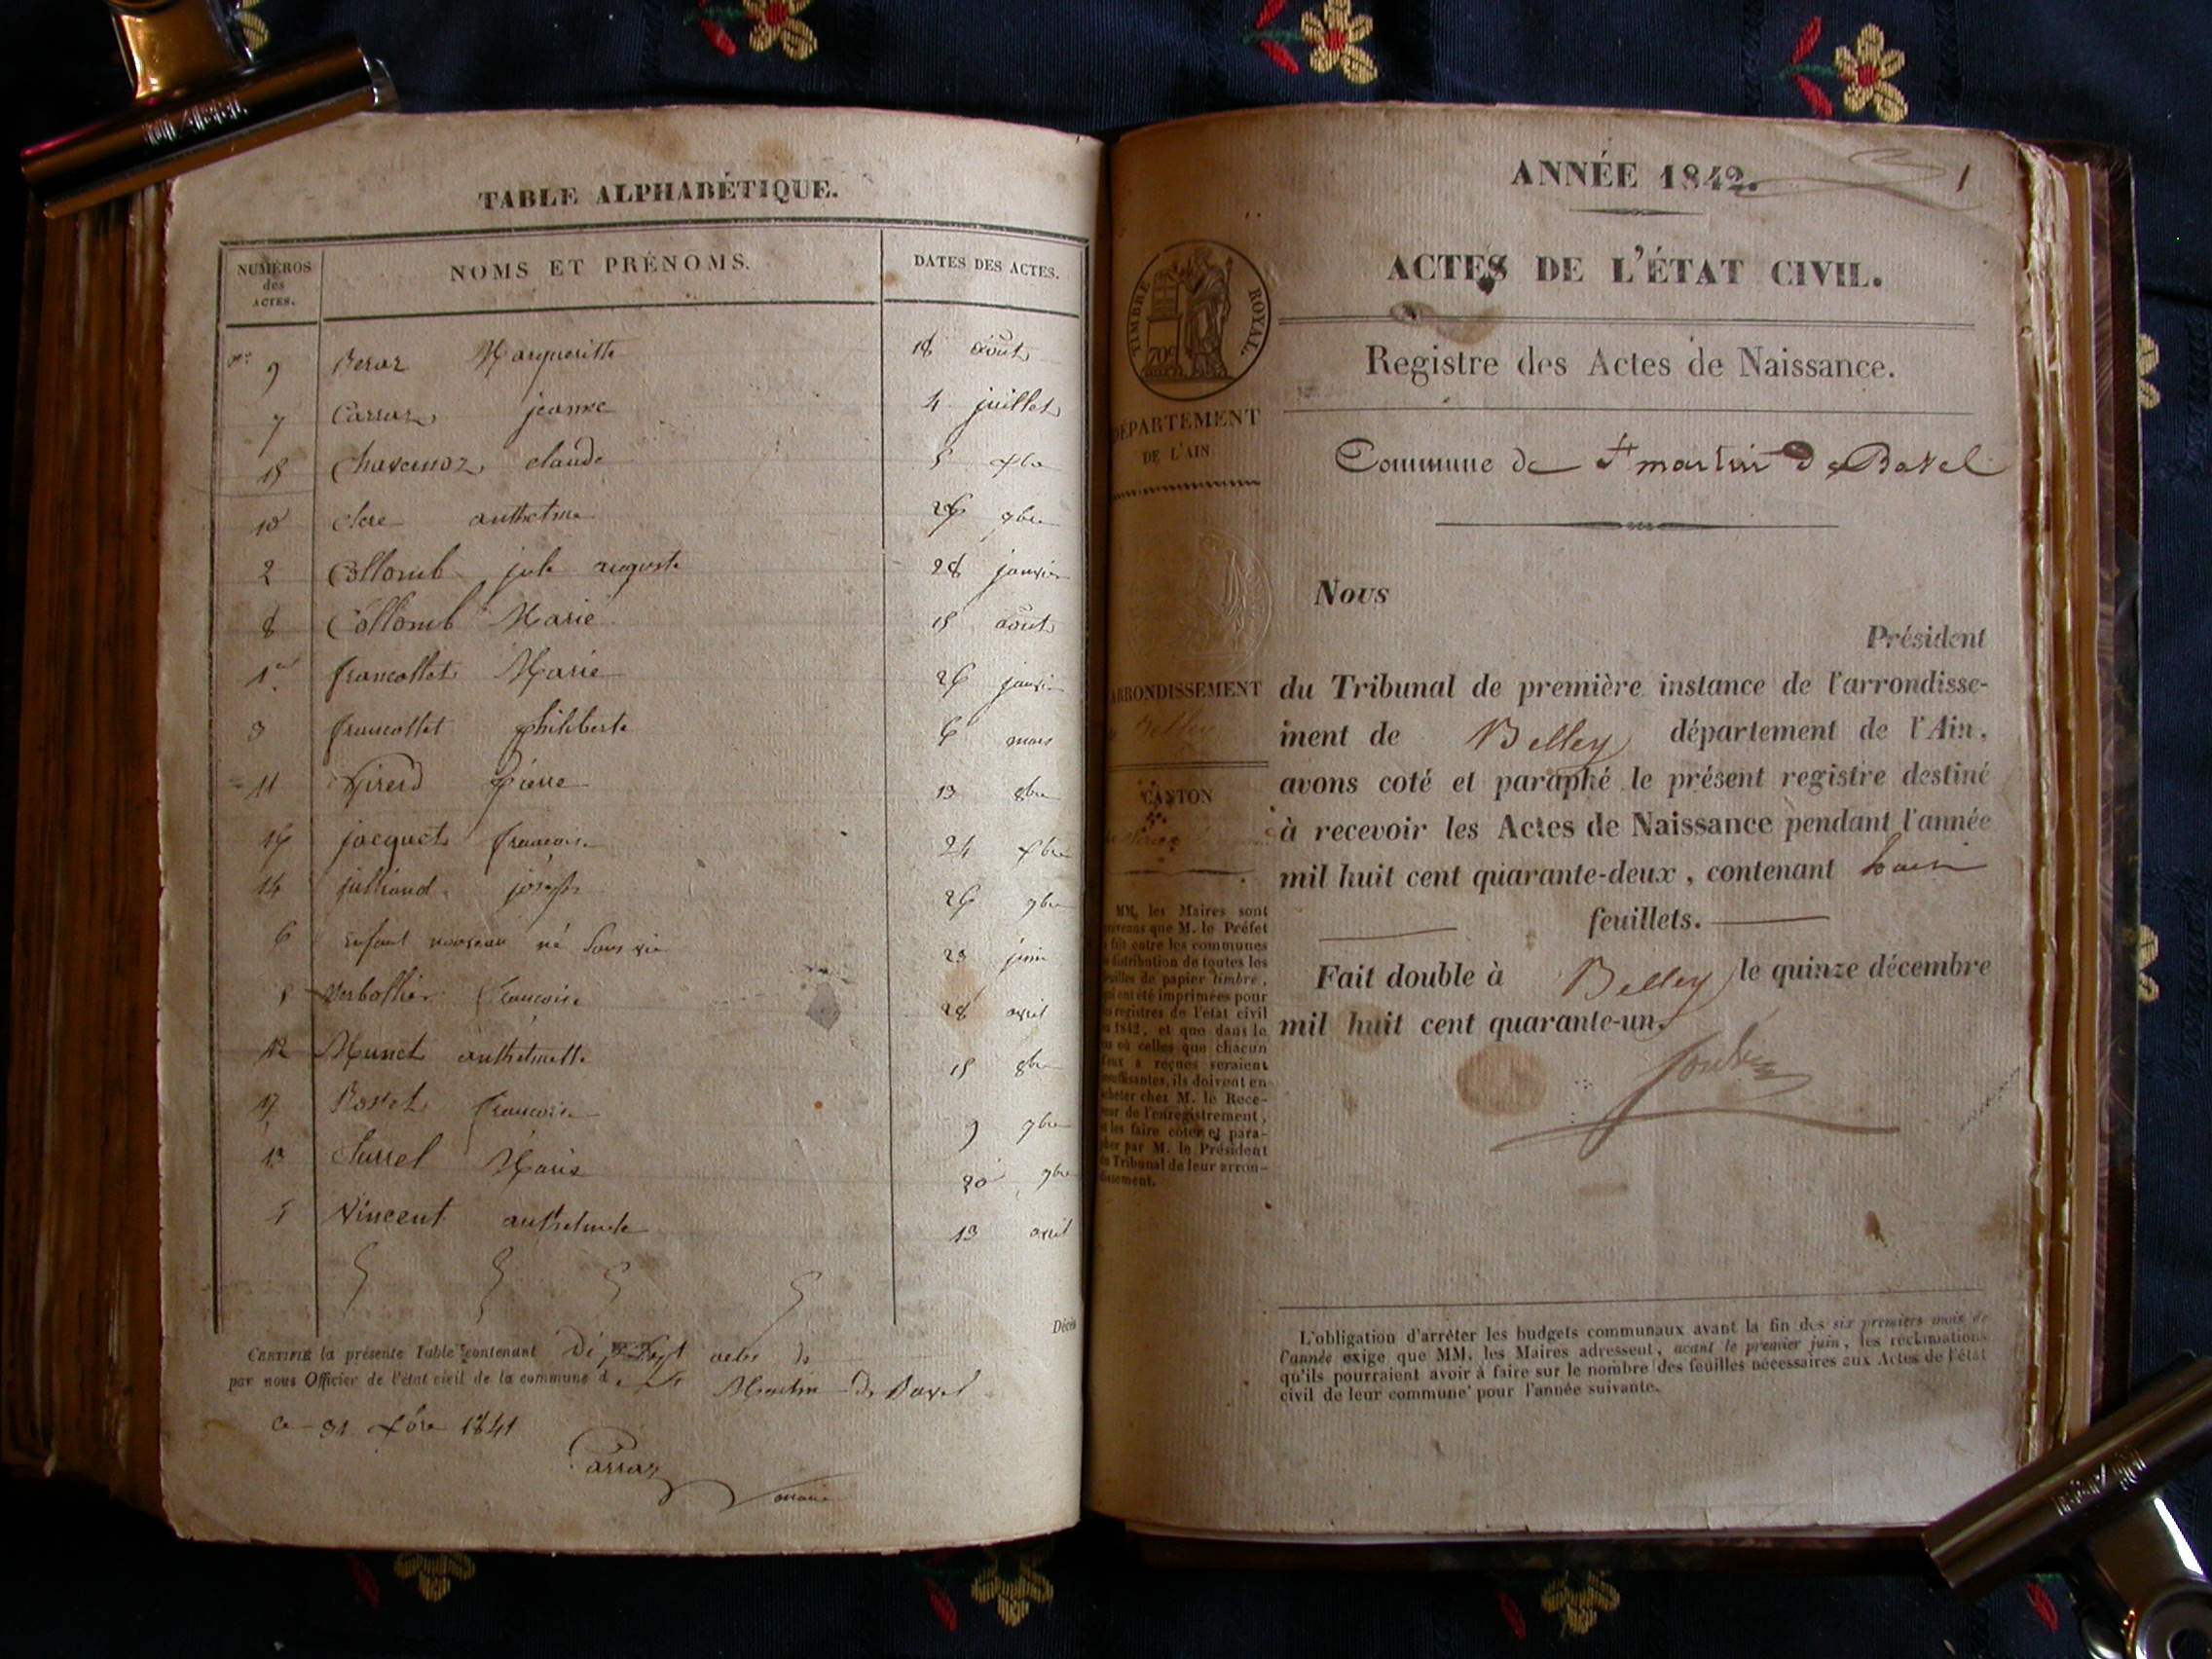 TABLE ALPHABÉTIQUE.
NUMÉROS
des
ACTES.
NOMS ET PRÉNOMS.
DATES DES ACTES.
9 Marguerite 18 août
7 Carraz jeanne 4 juillet
15 Chavanoz claude 5
10 Clerc anthelme 26 7bre
2 Collomb jule auguste 28 janvier
8 Collomb Marie 15 août
1er francottet Marie 26 janvier
3 francottet philiberte 6 mars
11 Girerd pierre 13 8bre
16 jacquet francoise 24 xbre
14 julliand joseph 26 9bre
6 Enfant nouveau né sans vie 23 juin
francoise 28 avril
12 Munet anthelmette 15 8bre
17 francoise 9 9bre
13 Marie 20 9bre
Vincent anthelmette 13 avril
Décès
CERTIFIÉ la présente Table contenant actes
par nous Officier de l'état civil de la commune d Martin de Bavel
ce 31 xbre 1841
Carraz
maire
ANNÉE 1842.
1
ACTES DE L'ÉTAT CIVIL.
TIMBRE ROYAL.
70c
Registre des Actes de Naissance.
DÉPARTEMENT
DE L'AIN.
Commune de St martin de Bavel
Nous
Président
ARRONDISSEMENT
Belley
du Tribunal de première instance de l'arrondisse-
ment de Belley département de l'Ain,
avons coté et paraphé le présent registre destiné
CANTON
à recevoir les Actes de Naissance pendant l'année
mil huit cent quarante-deux, contenant
feuillets.
Fait double à Belley le quinze décembre
mil huit cent quarante-un.
MM. les Maires sont
prévenus que M. le Préfet
a fait entre les communes
distribution de toutes les
feuilles de papier timbré,
qui ont été imprimées pour
les registres de l'état civil
de 1842, et que dans le
cas où celles que chacun
d'eux a reçues seraient
insuffisantes, ils doivent en
acheter chez M. le Rece-
veur de l'enregistrement,
et les faire coter et para-
pher par M. le Président
du Tribunal de leur arron-
dissement.
L'obligation d'arrêter les budgets communaux avant la fin des six premiers mois de
l'année exige que MM. les Maires adressent, avant le premier juin, les réclamations
qu'ils pourraient avoir à faire sur le nombre des feuilles nécessaires aux Actes de l'état
civil de leur commune pour l'année suivante.